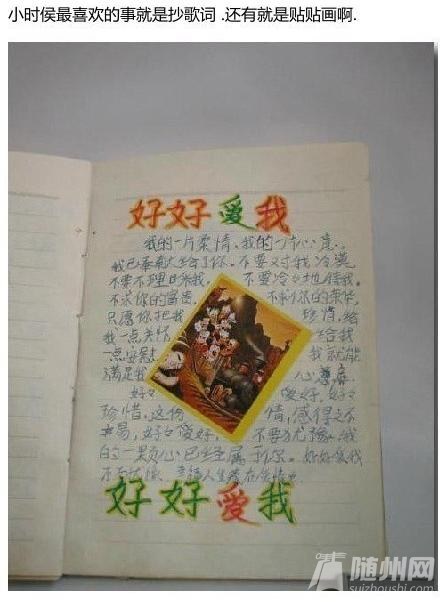 小时侯最喜欢的事就是抄歌词 .还有就是贴贴画啊.
好好爱我
我的一片柔情、我的一片心意、
我已奉献给了你。不要对我冷漠
不要不理睬我. 不要冷冷地待我。
不求你的富贵. 不求你的荣华
只愿你把我 珍惜，给
我一点关怀 给我
一点安慰 我就能
满足我 心意
好好 爱好，好好
珍惜。这份 情，感得之不
易，好好爱好， 不要犹豫。我
的一颗心已全属于你。好好爱我
幸福人生
好好爱我
随州网
suizhoushi.com